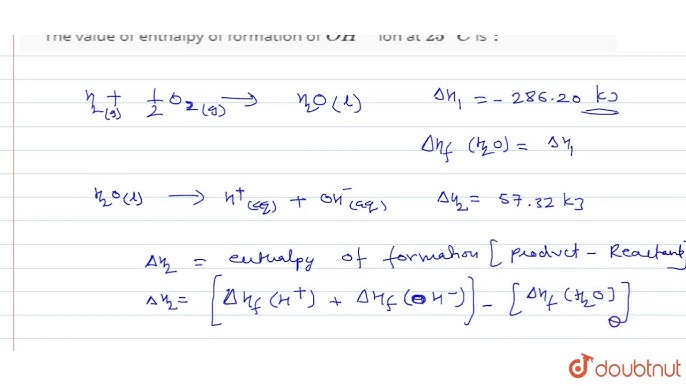 The value of enthalpy of formation of OH ion at 25 °C is :
H2(g) + 1/2 O2(g) → H2O(l) ΔH1 = - 286.20 kJ
ΔHf (H2O) = ΔH1
H2O(l) → H+(aq) + OH-(aq) ΔH2 = 57.32 kJ
ΔH2 = enthalpy of formation [ product - Reactant]
ΔH2 = [ΔHf (H+) + ΔHf (OH-)] - [ΔHf (H2O)]
doubtnut